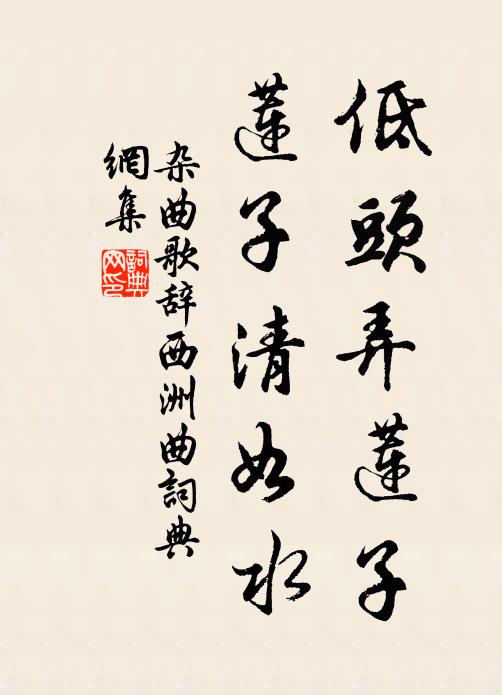 低頭弄蓮子
蓮子清如水
杂曲歌辞西洲曲詞典
網集
詞典网印